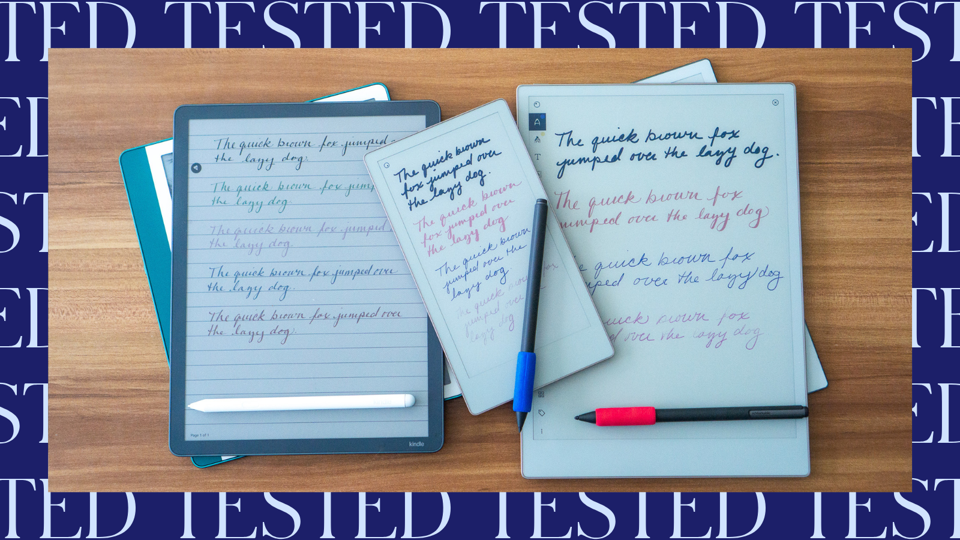 TED TESTED TESTED TEST
ED
ST
ED
ST
The quick brown fox jumped
the lazy dog.
The quick brown fox
the lazy dog.
The quick brown fox jumped
the lazy dog.
The quick brown fox jumped over
the lazy dog.
The quick brown fox jumped over
the lazy dog.
Page 1 of 1
kindle
The quick brown
fox jumped over
the lazy dog.
The quick brown
fox jumped over
the lazy dog
The quick brown
jumped over the
lazy dog
The quick
jumped over
lazy dog
The quick brown fox
jumped over the lazy dog.
The quick brown fox
jumped over the lazy dog
quick brown fox
over the lazy dog
quick brown fox
over the lazy dog
ED
ED
TED TESTED TESTED TEST